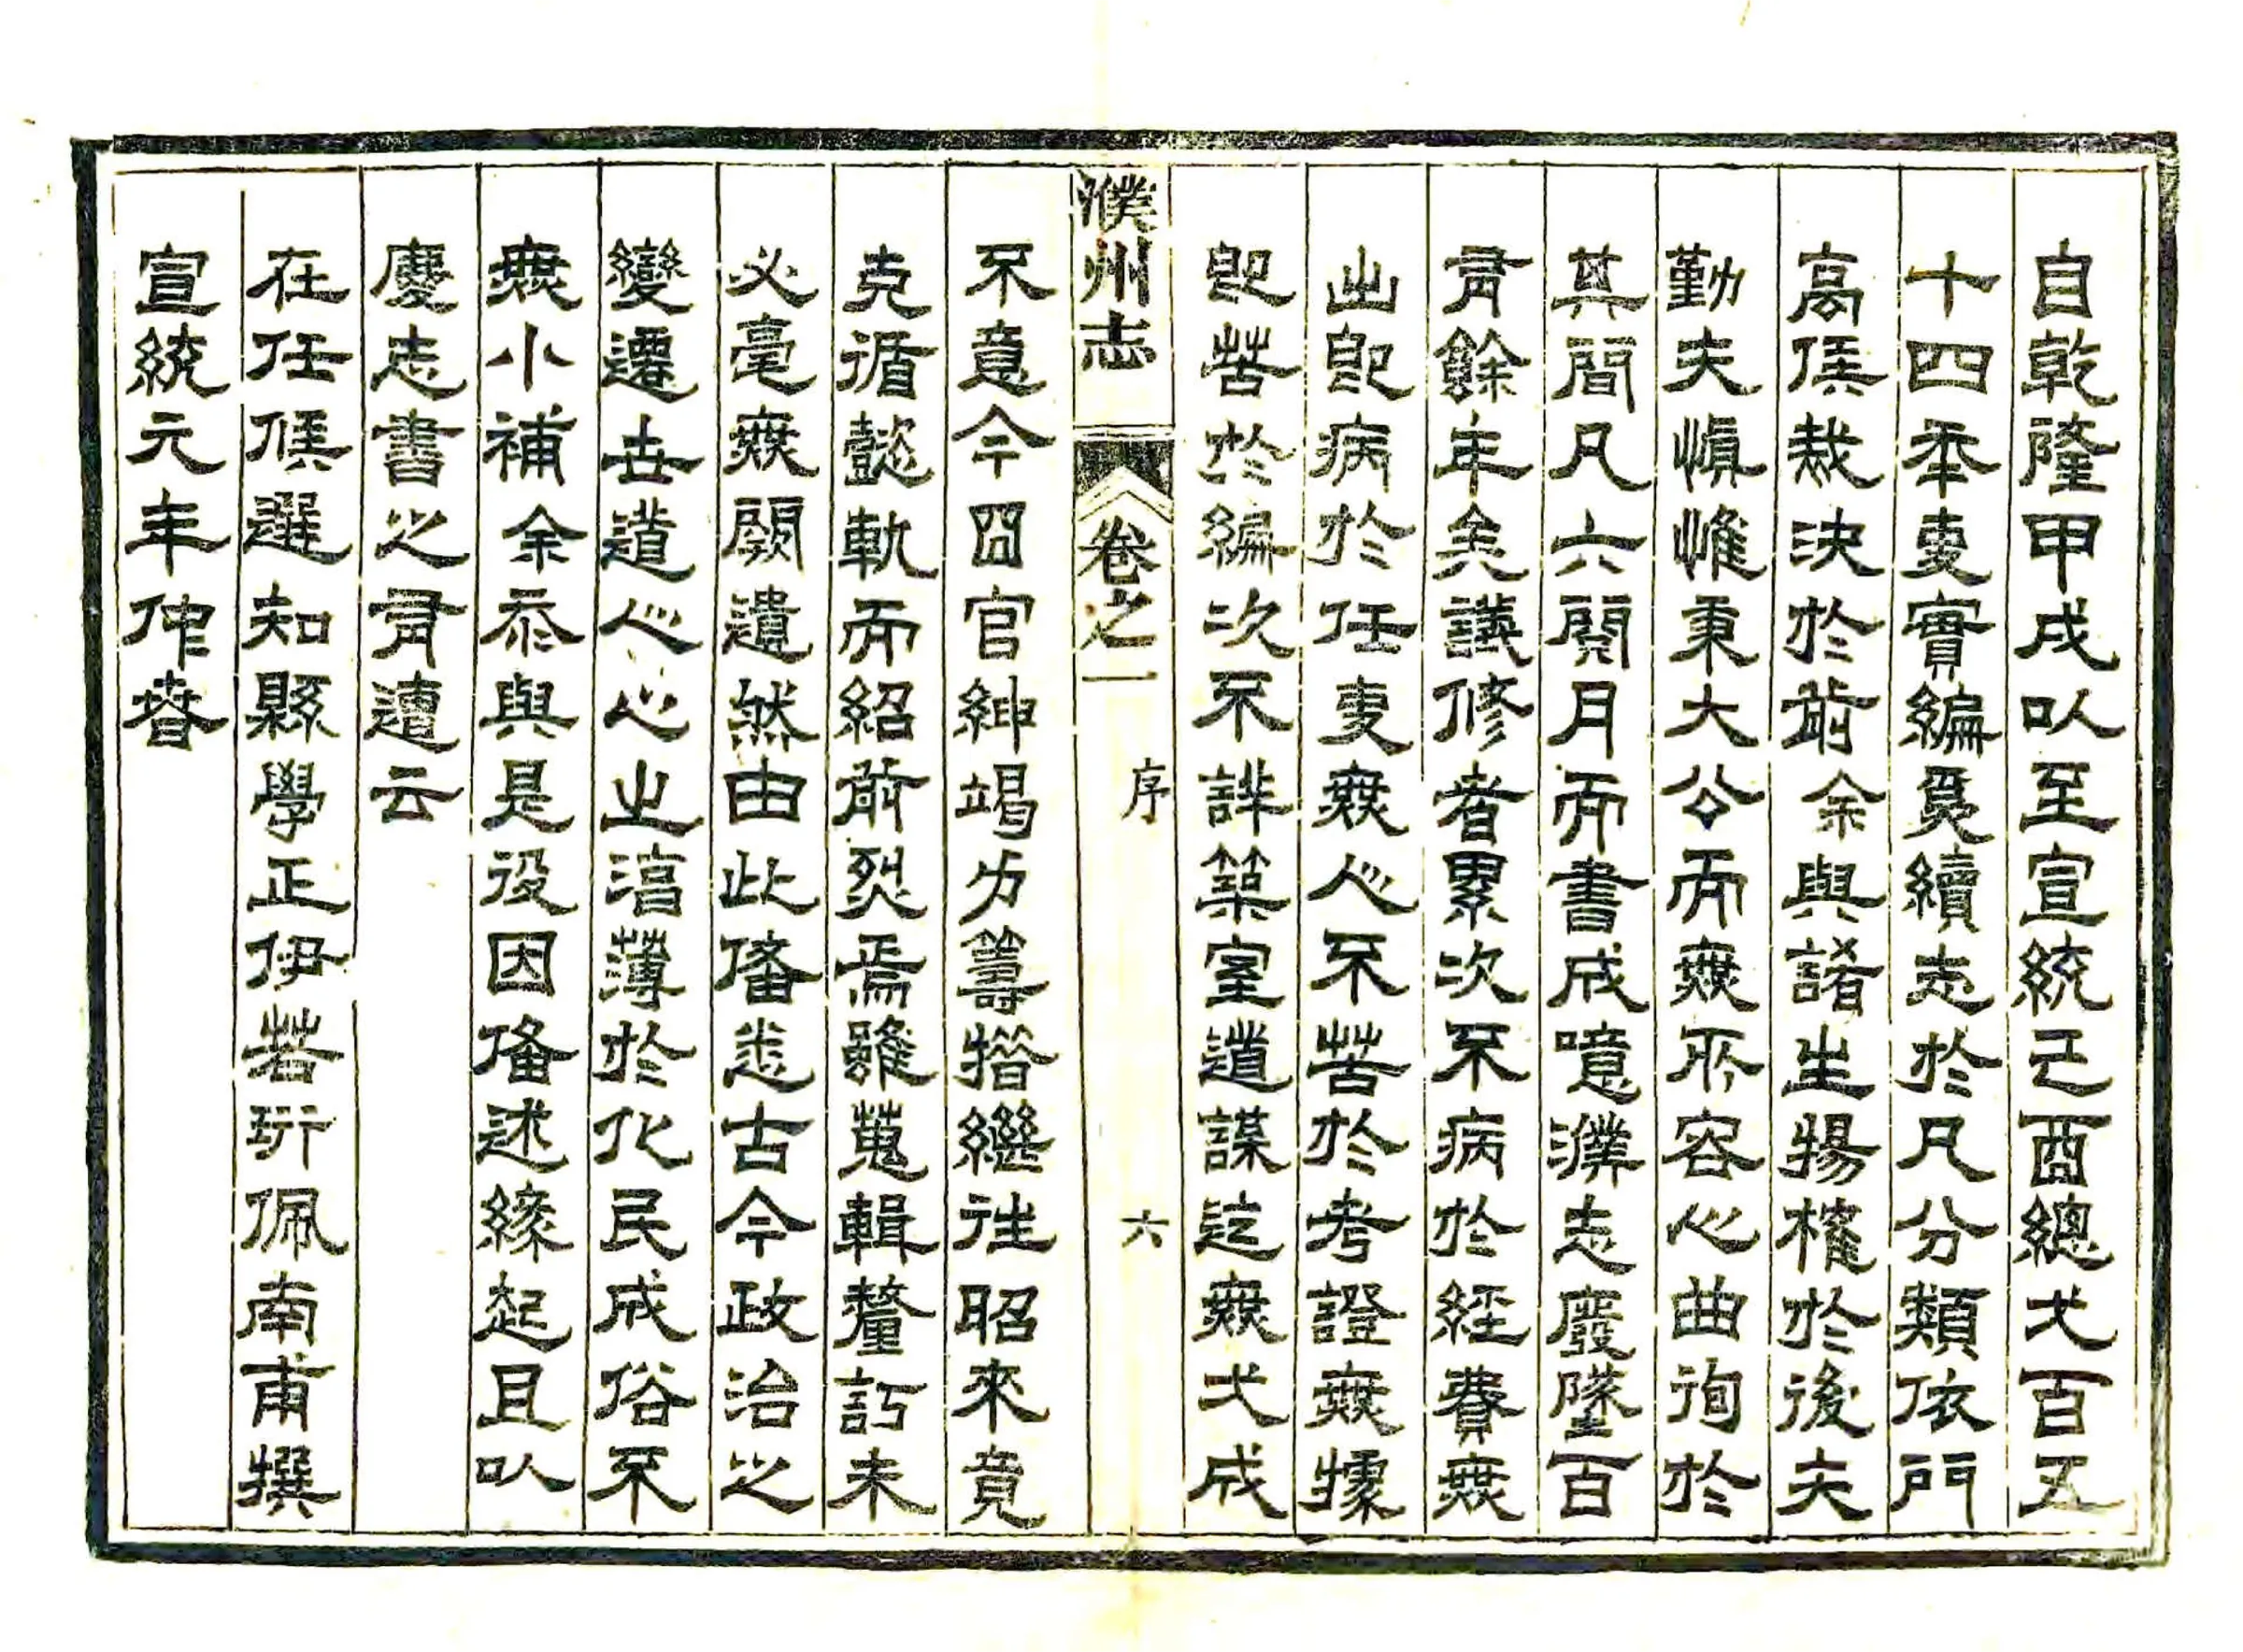 自乾隆甲戌以至宣統己酉總弌百五
十四年事實編爲續志於凡分類依門
高侯裁決於前余與諸生揚榷於後夫
勤夫慎惟秉大公而無所容心曲徇於
其間凡六閱月而書成噫濮志廢墜百
有餘年矣議修者累次不病於經費無
出即病於任事無人不苦於考證無據
即苦於編次不詳築室道謀迄無弌成
濮州志 卷之一 序 六
不意今囧官紳竭力籌措繼往昭來竟
克循懿軌而紹前烈焉雖蒐輯釐訂未
必毫無闕遺然由此備悉古今政治之
變遷世道人心之淳薄於化民成俗不
無小補余忝與是役因備述緣起且以
慶志書之有遭云
在任候選知縣學正伊若珩佩南甫撰
宣統元年仲春